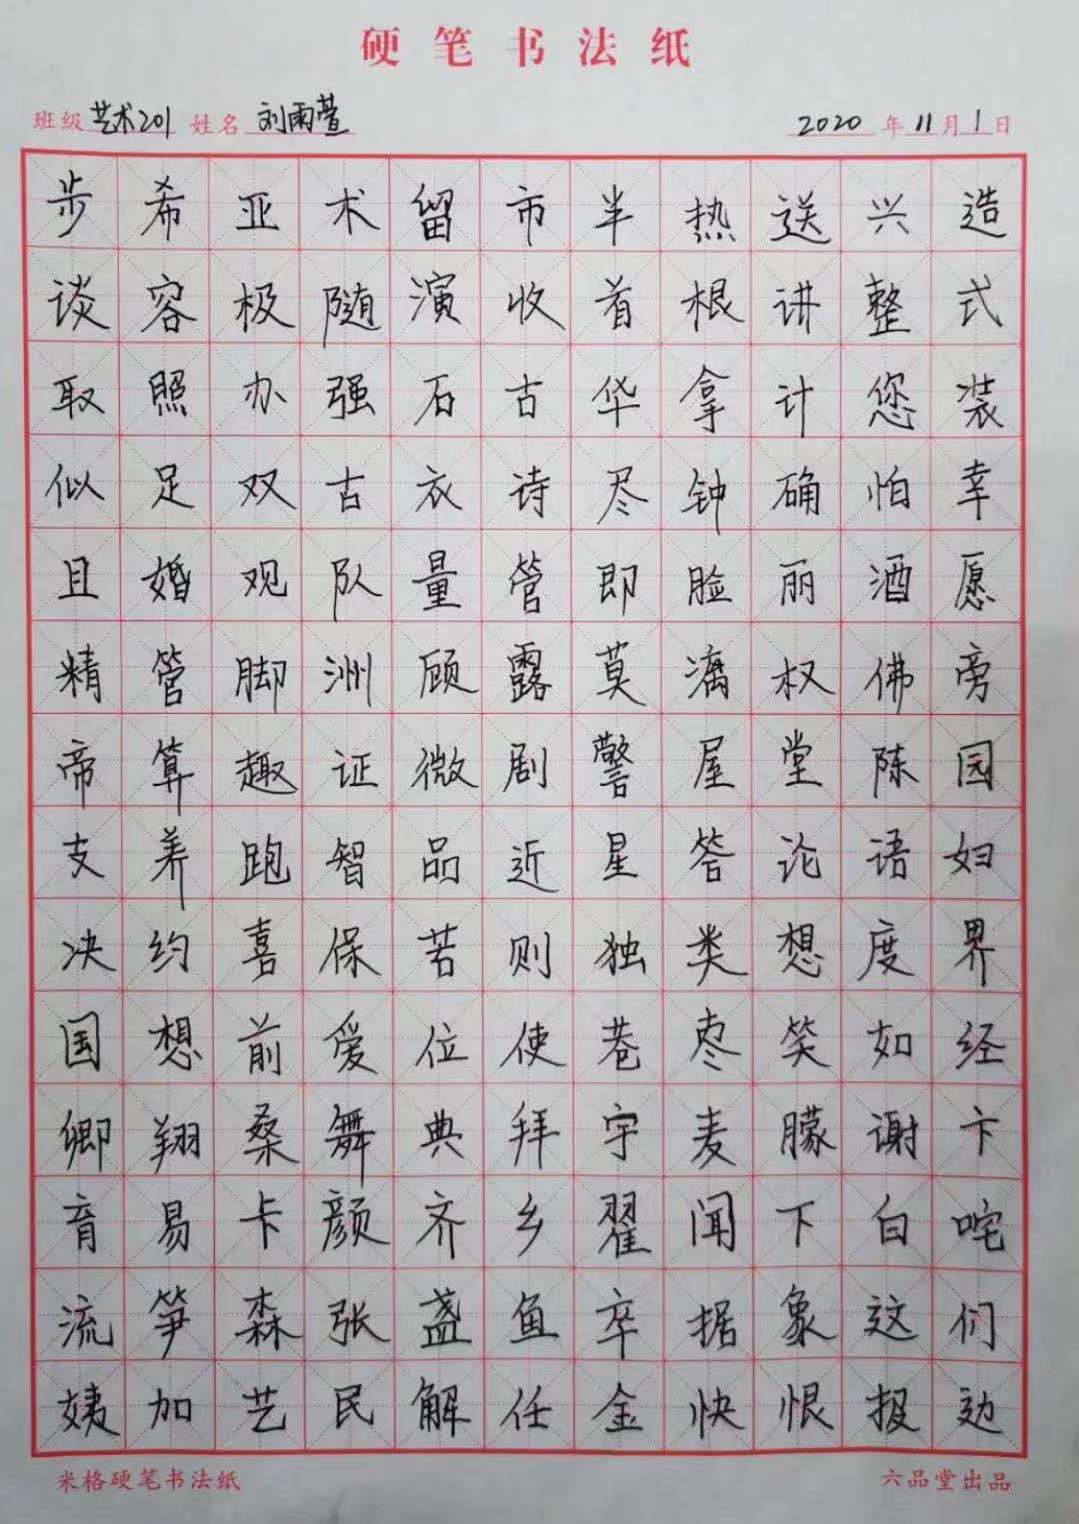 硬笔书法纸
班级 艺术201 姓名 刘雨萱 2020 年 11 月 1 日
步希亚术留市半热送兴造
谈容极随演收首根讲整式
取照办强石古华拿计您装
似足双古衣诗尽钟确怕幸
且婚观队量管即脸丽酒愿
精管脚洲顾露莫漓权佛旁
帝算趣证微剧警屋堂陈园
支养跑智品近星答论语妇
决约喜保若则独类想度界
国想前爱位使苍枣笑如经
卿翔桑舞典拜宇麦朦谢卞
育易卡颜齐乡翟闻下白咤
流笋森张盏鱼卒据象这们
姨加艺民解任金快恨报边
米格硬笔书法纸 六品堂出品